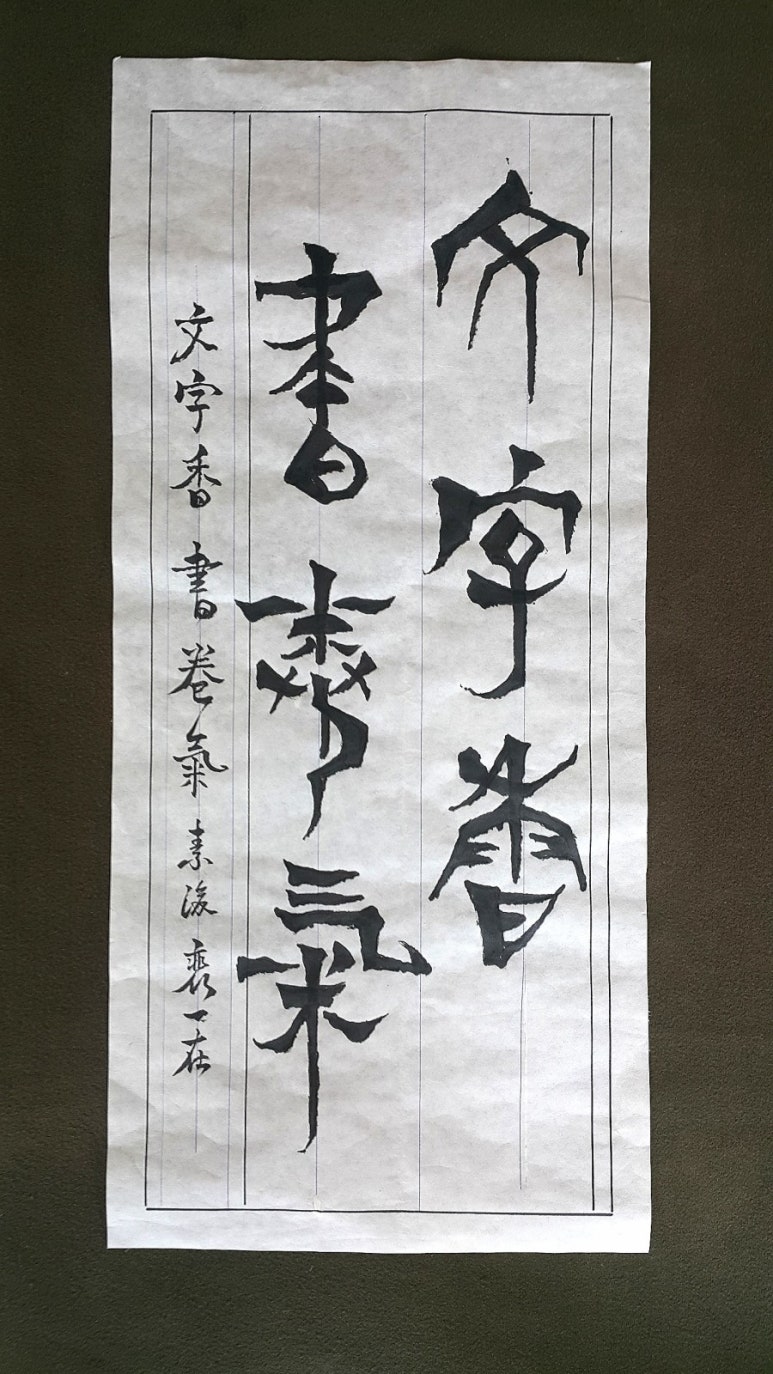 文字香
書卷氣
文字香 書卷氣 素浚 裵一在